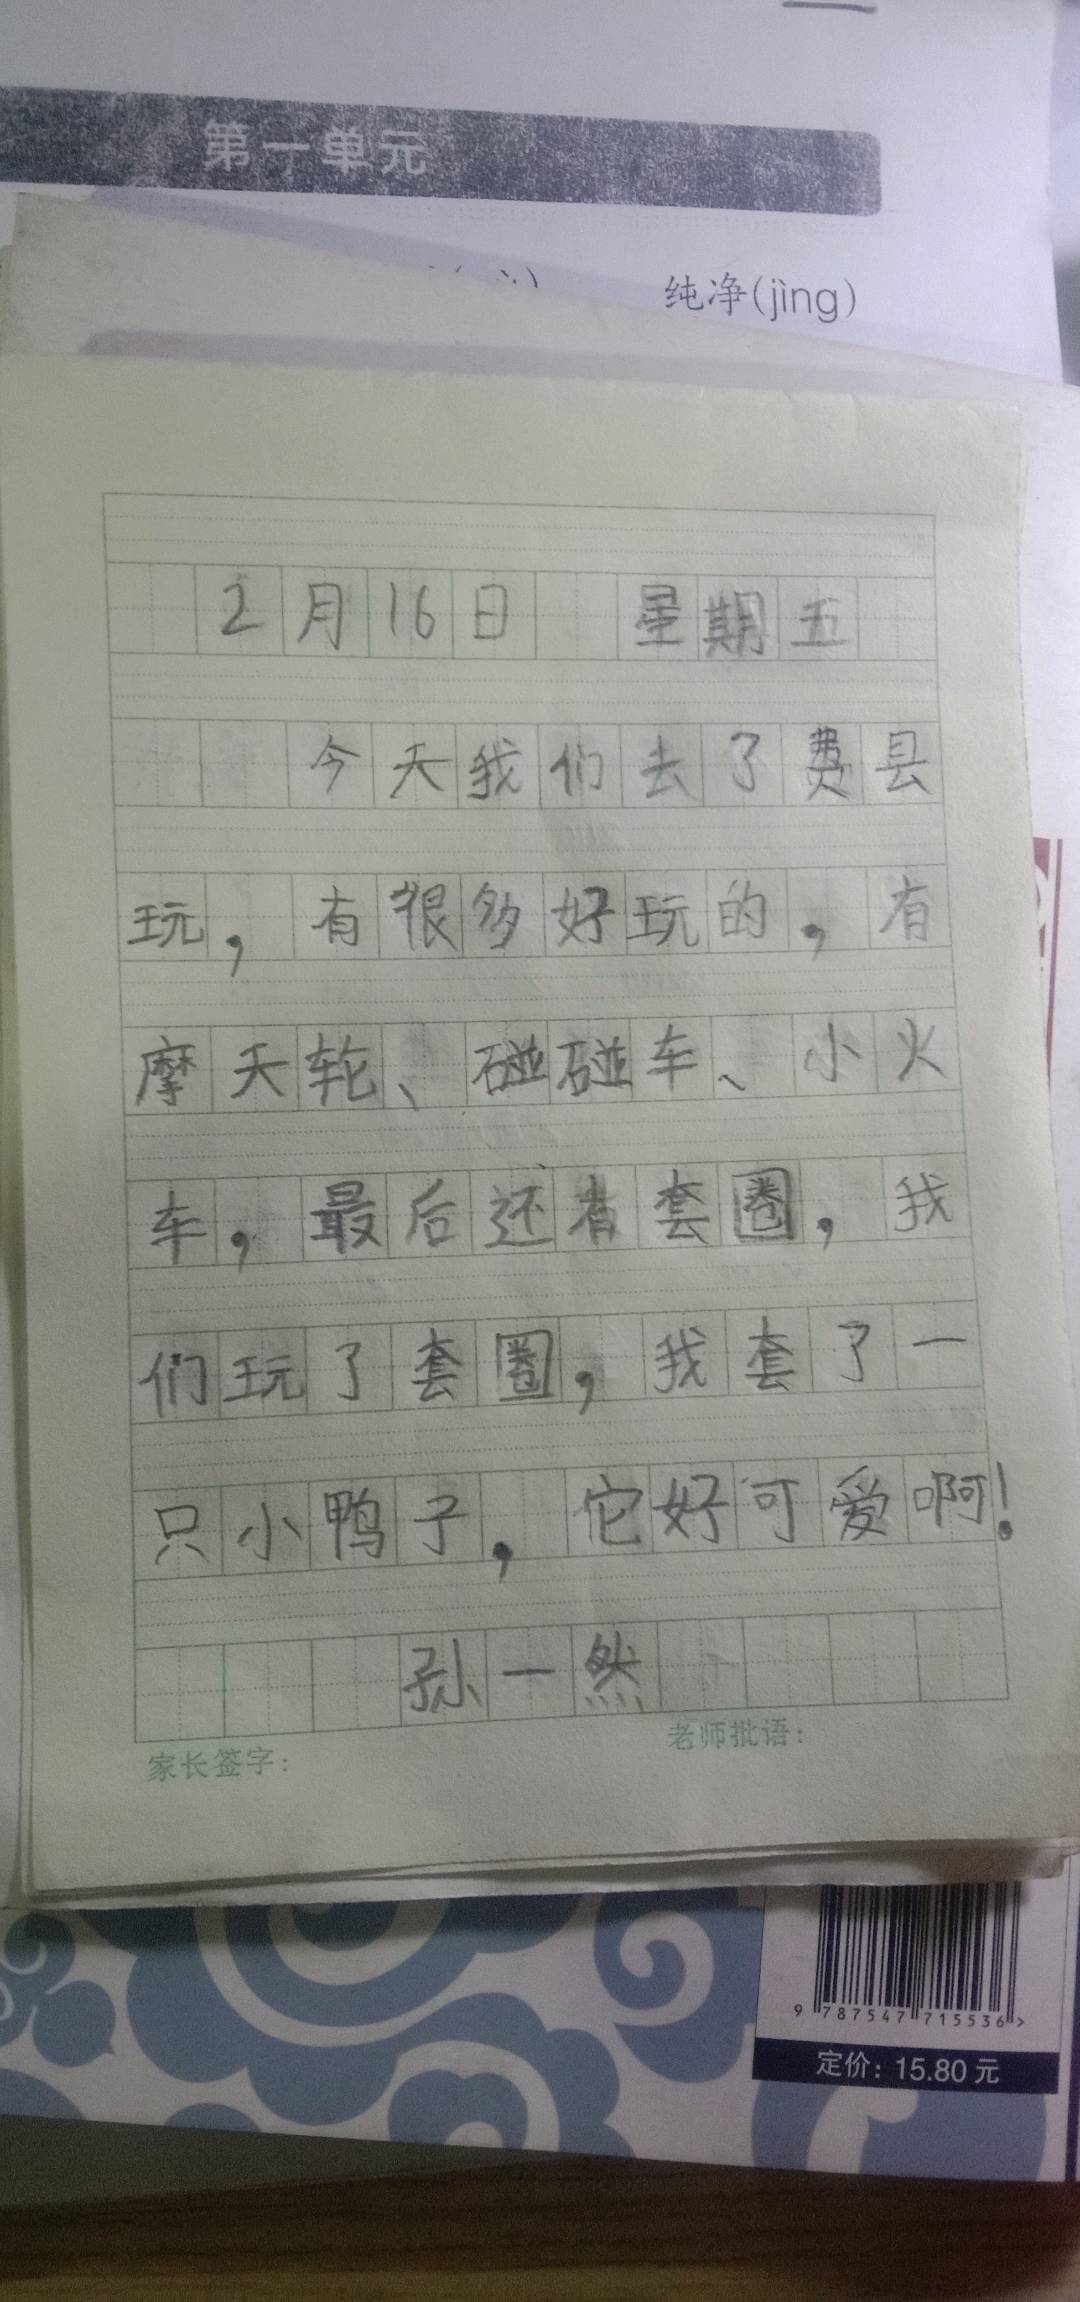 第一单元
纯净(jìng)
2月16日 星期五
今天我们去了费县
玩，有很多好玩的，有
摩天轮、碰碰车、小火
车，最后还有套圈，我
们玩了套圈，我套了一
只小鸭子，它好可爱啊！
孙一然
家长签字：
老师批语：
9 787547 715536 >
定价：15.80元